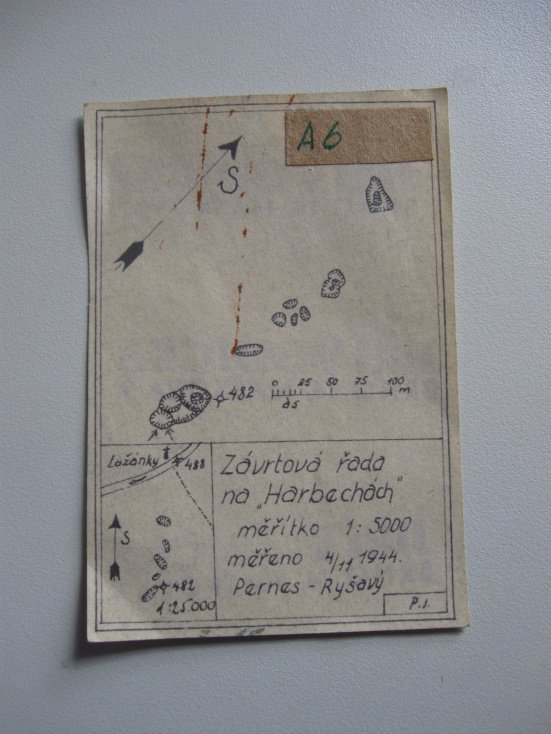 A6
S
482
0 25 50 75 100
m
d5
Lažánky
488
S
482
1:25.000
Závrtová řada
na „Harbechách"
měřítko 1:5000
měřeno 4/11 1944.
Pernes - Ryšavý
P.J.